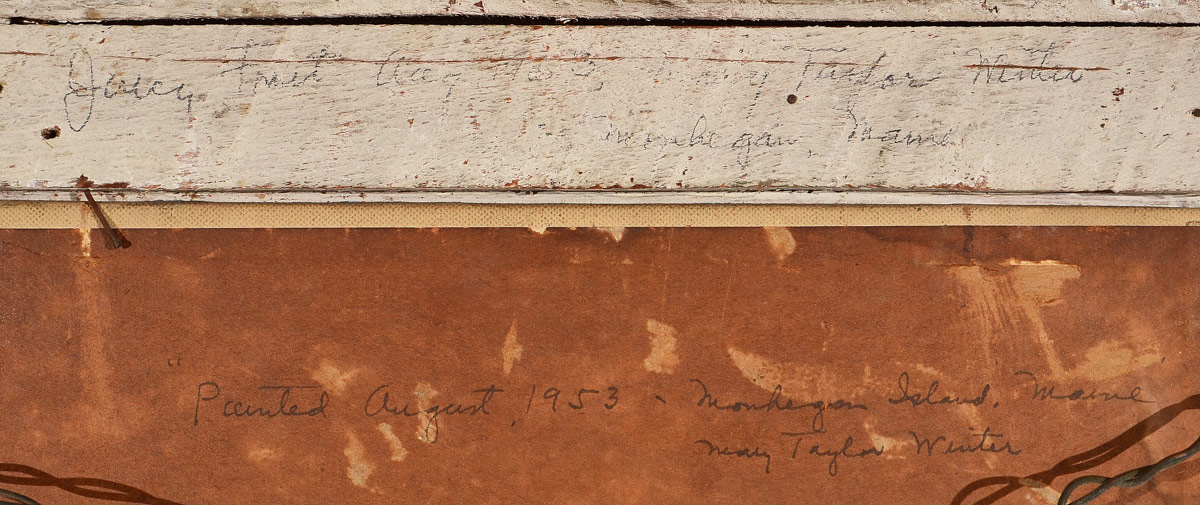 Juicy Fruit Aug 1953, Mary Taylor Winter
Monhegan, Maine
"Painted August, 1953 - Monhegan Island, Maine"
Mary Taylor Winter